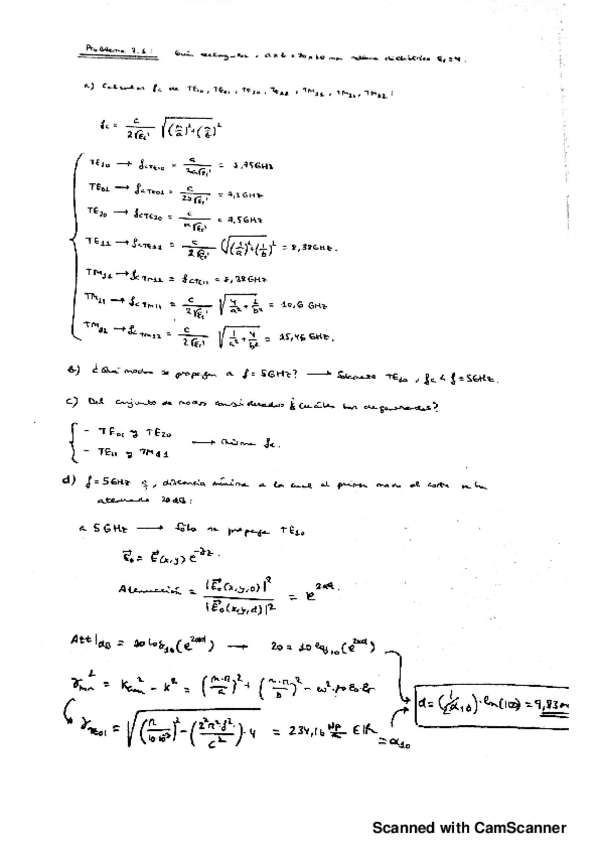 Problema 2.1: Guía rectangular, a x b = 20 x 10 mm relleno dieléctrico εr = 4.
a) Calcular fc de TE10, TE01, TE20, TE11, TM11, TM21, TM12:
fc = c/(2√εr) √((m/a)²+(n/b)²)
TE10 → fcTE10 = c/(2a√εr) = 3,75GHz
TE01 → fcTE01 = c/(2b√εr) = 7,5GHz
TE20 → fcTE20 = c/(a√εr) = 7,5GHz
TE11 → fcTE11 = c/(2√εr) √((1/a)²+(1/b)²) = 8,38GHz.
TM11 → fcTM11 = fcTE11 = 8,38GHz
TM21 → fcTM21 = c/(2√εr) √(4/a² + 1/b²) = 10,6 GHz
TM12 → fcTM12 = c/(2√εr) √(1/a² + 4/b²) = 15,46 GHz.
b) ¿Qué modos se propagan a f = 5GHz? → Solamente TE10, fc < f = 5GHz.
c) Del conjunto de modos considerados ¿cuáles son degenerados?
- TE01 y TE20
- TE11 y TM11 → Misma fc.
d) f = 5GHz, distancia mínima a la cual el primer modo al corte se ha
atenuado 20dB:
a 5GHz → Sólo se propaga TE10
E0 = E(x,y) e^-γz.
Atenuación = |E0(x,y,0)|² / |E0(x,y,d)|² = e^2αd.
Att|dB = 10 log10 (e^2αd) → 20 = 10 log10 (e^2αd)
γmn² = Kcmn² - K² = (m·π/a)² + (n·π/b)² - ω²·μ0·ε0·εr
d = (1/2α10)·ln(100) = 9,83m
γTE01 = √((π/10·10⁻³)² - (2²π²f²/c²)·4) = 234,16 Np/m ∈ ℝ = α10
Scanned with CamScanner